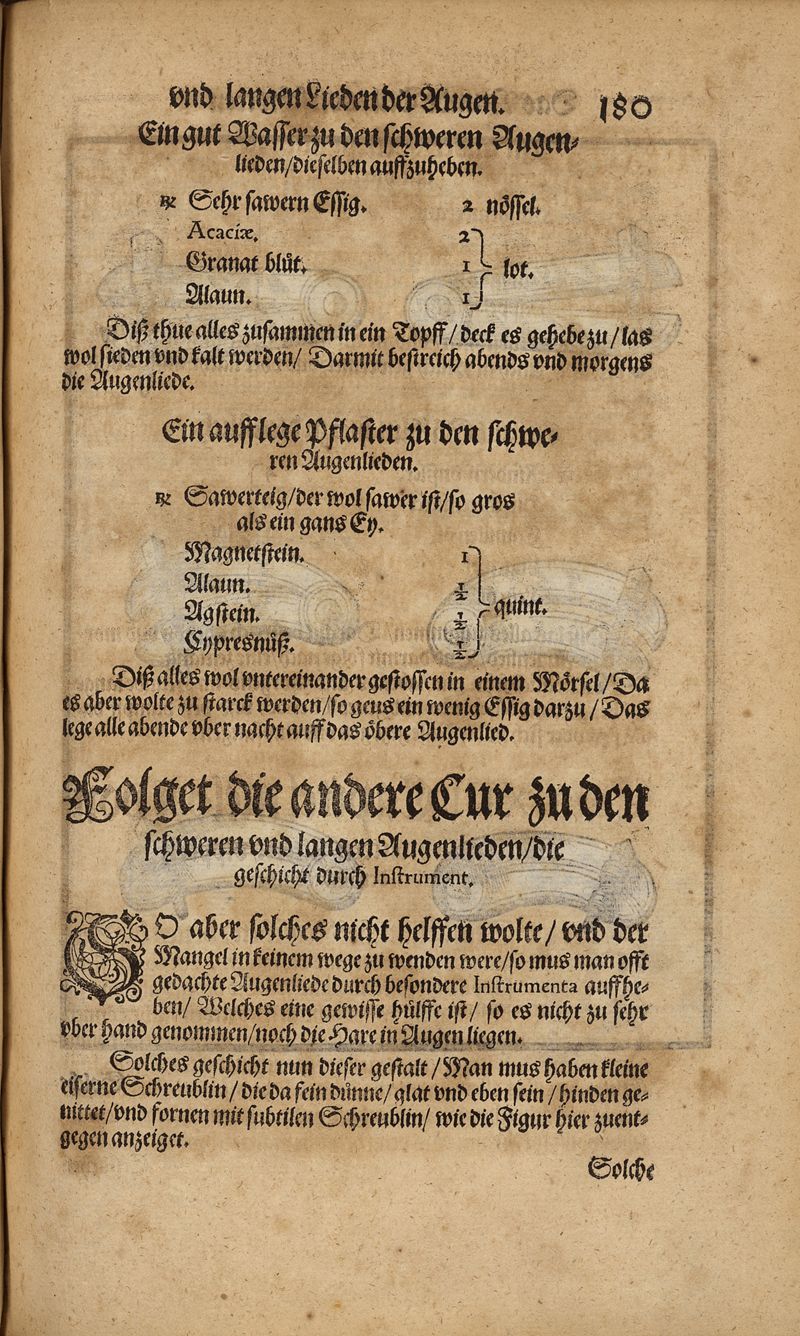 vnd langen Lieden der Augen. 180
Ein gut Wasser zu den schweren Augen-
lieden/dieselben auffzuheben.
℞ Sehr sawern Essig. 2 nössel.
Acaciæ. 2
Granat blůt. 1 lot.
Alaun. 1
Diß thue alles zusammen in ein Topff/ deck es gehebe zu/ las
wol sieden vnd kalt werden/ Darmit bestreich abends vnd morgens
die Augenliede.
Ein aufflege Pflaster zu den schwe-
ren Augenlieden.
℞ Sawerteig/der wol sawer ist/so gros
als ein gans Ey.
Magnetstein. 1
Alaun. ½
Agstein. ½ quint.
Cypresnůß. ½
Diß alles wol vntereinander gestossen in einem Mörsel/ Da
es aber wolte zu starck werden/so geus ein wenig Essig darzu/ Das
lege alle abende vber nacht auff das öbere Augenlied.
Folget die andere Cur zu den
schweren vnd langen Augenlieden/die
geschicht durch Instrument.
SO aber solches nicht helffen wolte/ vnd der
Mangel in keinem wege zu wenden were/so mus man offt
gedachte Augenliede durch besondere Instrumenta auffhe-
ben/ Welches eine gewisse hůlffe ist/ so es nicht zu sehr
vber hand genommen/noch die Hare in Augen liegen.
Solches geschicht nun dieser gestalt/ Man mus haben kleine
eiserne Schreublin/ die da fein důnne/ glat vnd eben sein/ hinden ge-
nittet/vnd fornen mit subtilen Schreublin/ wie die Figur hier zuent-
gegen anzeiget.
Solche